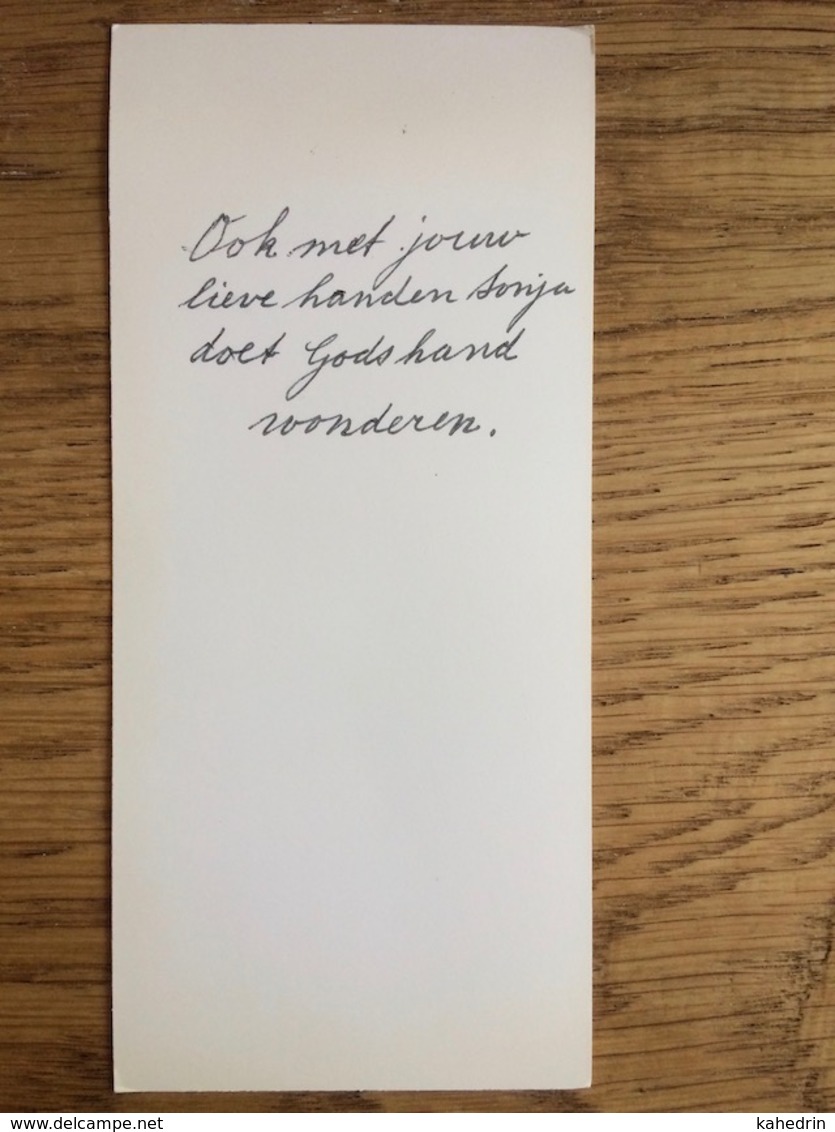 Ook met jouw
lieve handen Sonja
doet Gods hand
wonderen.
www.delcampe.net
kahedrin